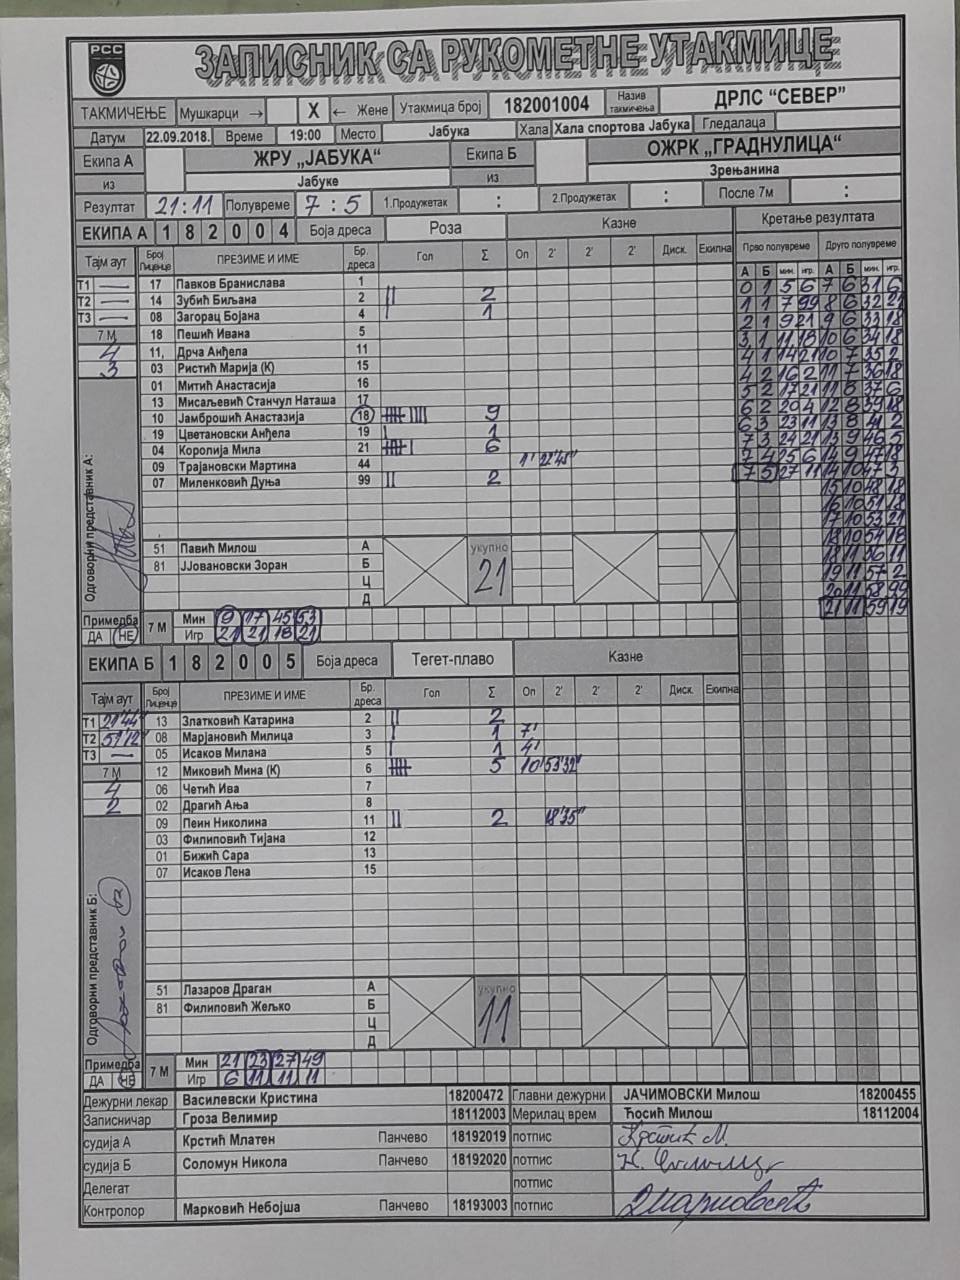 РСС
ЗАПИСНИК СА РУКОМЕТНЕ УТАКМИЦЕ
ТАКМИЧЕЊЕ Мушкарци → X ← Жене Утакмица број 182001004 Назив такмичења ДРЛС “СЕВЕР”
Датум 22.09.2018. Време 19:00 Место Јабука Хала Хала спортова Јабука Гледалаца
Екипа А ЖРУ „ЈАБУКА“ Екипа Б ОЖРК „ГРАДНУЛИЦА“
из Јабуке из Зрењанина
Резултат 21:11 Полувреме 7 : 5 1.Продужетак : 2.Продужетак : После 7м :
ЕКИПА А 1 8 2 0 0 4 Боја дреса Роза Казне Кретање резултата
Тајм аут Број Лиценце ПРЕЗИМЕ И ИМЕ Бр. дреса Гол Σ Оп 2' 2' 2' Диск. Екипна Прво полувреме Друго полувреме
А Б мин. игр. А Б мин. игр.
Т1 — 17 Павков Бранислава 1 0 1 5 6 7 6 31 6
Т2 — 14 Зубић Биљана 2 || 2 1 1 7 99 8 6 32 21
Т3 — 08 Загорац Бојана 4 | 1 2 1 9 21 9 6 33 18
7 М 18 Пешић Ивана 5 3 1 11 18 10 6 34 18
4 11, Дрча Анђела 11 4 1 14 21 10 7 35 2
3 03 Ристић Марија (К) 15 4 2 16 2 11 7 36 18
01 Митић Анастасија 16 5 2 17 21 11 8 37 6
13 Мисаљевић Станчул Наташа 17 6 2 20 4 12 8 39 18
10 Јамброшић Анастазија 18 9 6 3 23 11 13 8 41 2
19 Цветановски Анђела 19 | 1 7 3 24 21 13 9 46 5
04 Королија Мила 21 6 7 4 25 6 14 9 47 18
09 Трајановски Мартина 44 1' 22'45" 7 5 27 11 14 10 47 3
07 Миленковић Дуња 99 || 2 15 10 48 18
16 10 51 18
17 10 53 21
51 Павић Милош А укупно 18 10 54 18
81 ЈЈовановски Зоран Б 21 18 11 56 11
Ц 19 11 57 2
Д 20 11 58 99
21 11 59 19
Одговорни представник А:
Примедба ДА НЕ 7 М Мин 9 17 45 53
Игр 21 21 18 21
ЕКИПА Б 1 8 2 0 0 5 Боја дреса Тегет-плаво Казне
Тајм аут Број Лиценце ПРЕЗИМЕ И ИМЕ Бр. дреса Гол Σ Оп 2' 2' 2' Диск. Екипна
Т1 21'44" 13 Златковић Катарина 2 || 2
Т2 51'12" 08 Марјановић Милица 3 | 1 7'
Т3 — 05 Исаков Милана 5 | 1 4'
7 М 12 Миковић Мина (К) 6 5 10' 53'32"
4 06 Четић Ива 7
2 02 Драгић Ања 8
09 Пеин Николина 11 || 2 18'35"
03 Филиповић Тијана 12
01 Бижић Сара 13
07 Исаков Лена 15
Одговорни представник Б:
51 Лазаров Драган А укупно
81 Филиповић Жељко Б 11
Ц
Д
Примедба ДА НЕ 7 М Мин 21 23 27 49
Игр 6 11 11 11
Дежурни лекар Василевски Кристина 18200472 Главни дежурни ЈАЧИМОВСКИ Милош 18200455
Записничар Гроза Велимир 18112003 Мерилац врем Ћосић Милош 18112004
судија А Крстић Млатен Панчево 18192019 потпис Крстић М.
судија Б Соломун Никола Панчево 18192020 потпис
Делегат потпис
Контролор Марковић Небојша Панчево 18193003 потпис